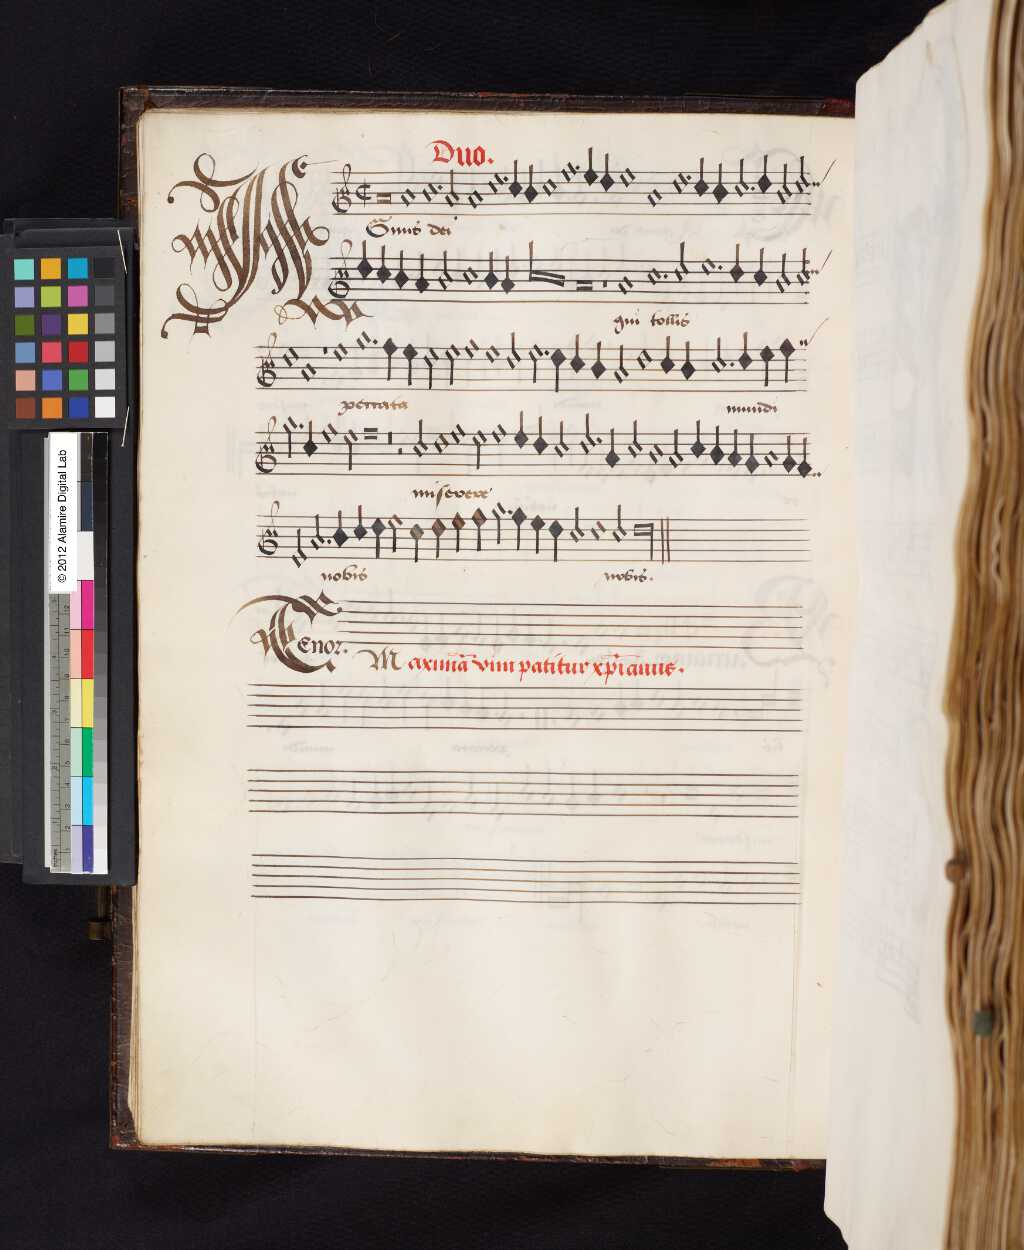 Duo.
Gnus dei
qui tollis
peccata
mundi
miserere
nobis
nobis.
Tenor. Maximā vim patitur xpianus.
© 2012 Alamire Digital Lab